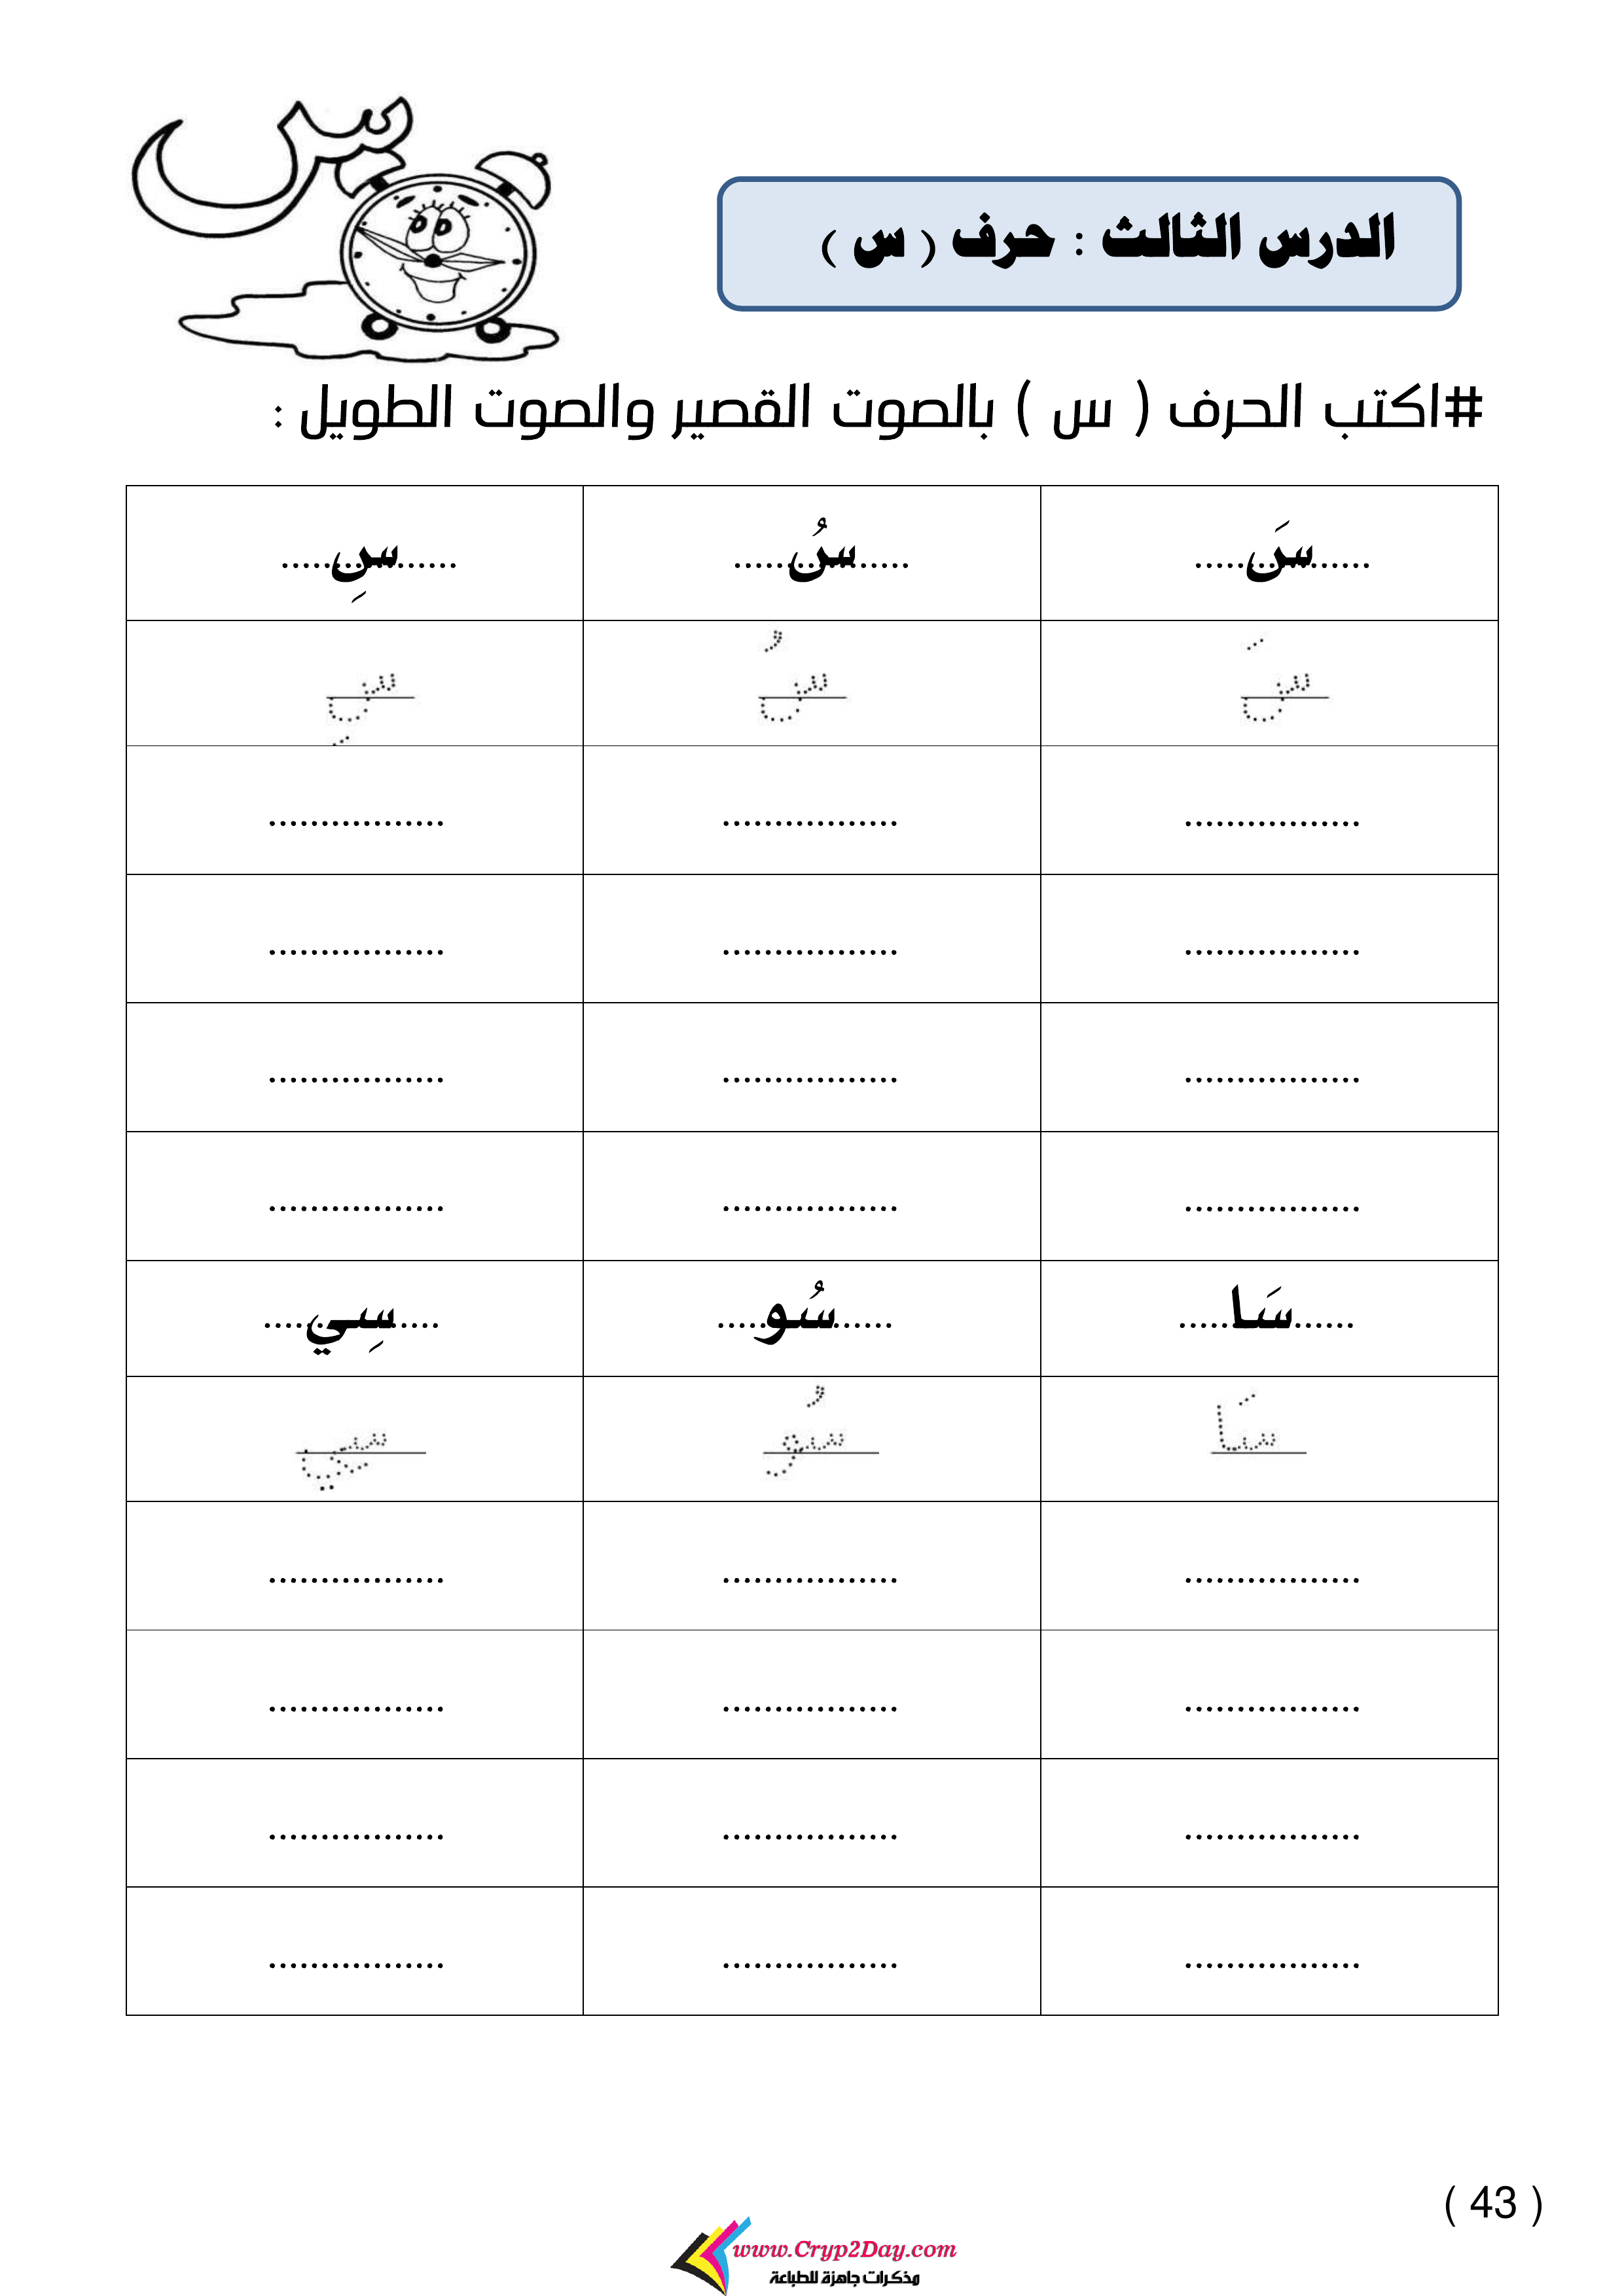 س
الدرس الثالث : حرف ( س )
#اكتب الحرف ( س ) بالصوت القصير والصوت الطويل :
سَ................. سُ................. سِ.................
سَ سُ سِ
................. ................. .................
................. ................. .................
................. ................. .................
................. ................. .................
سَا................. سُو................. سِي.................
سَا سُو سي
................. ................. .................
................. ................. .................
................. ................. .................
................. ................. .................
( 43 )
www.Cryp2Day.com
مذكرات جاهزة للطباعة